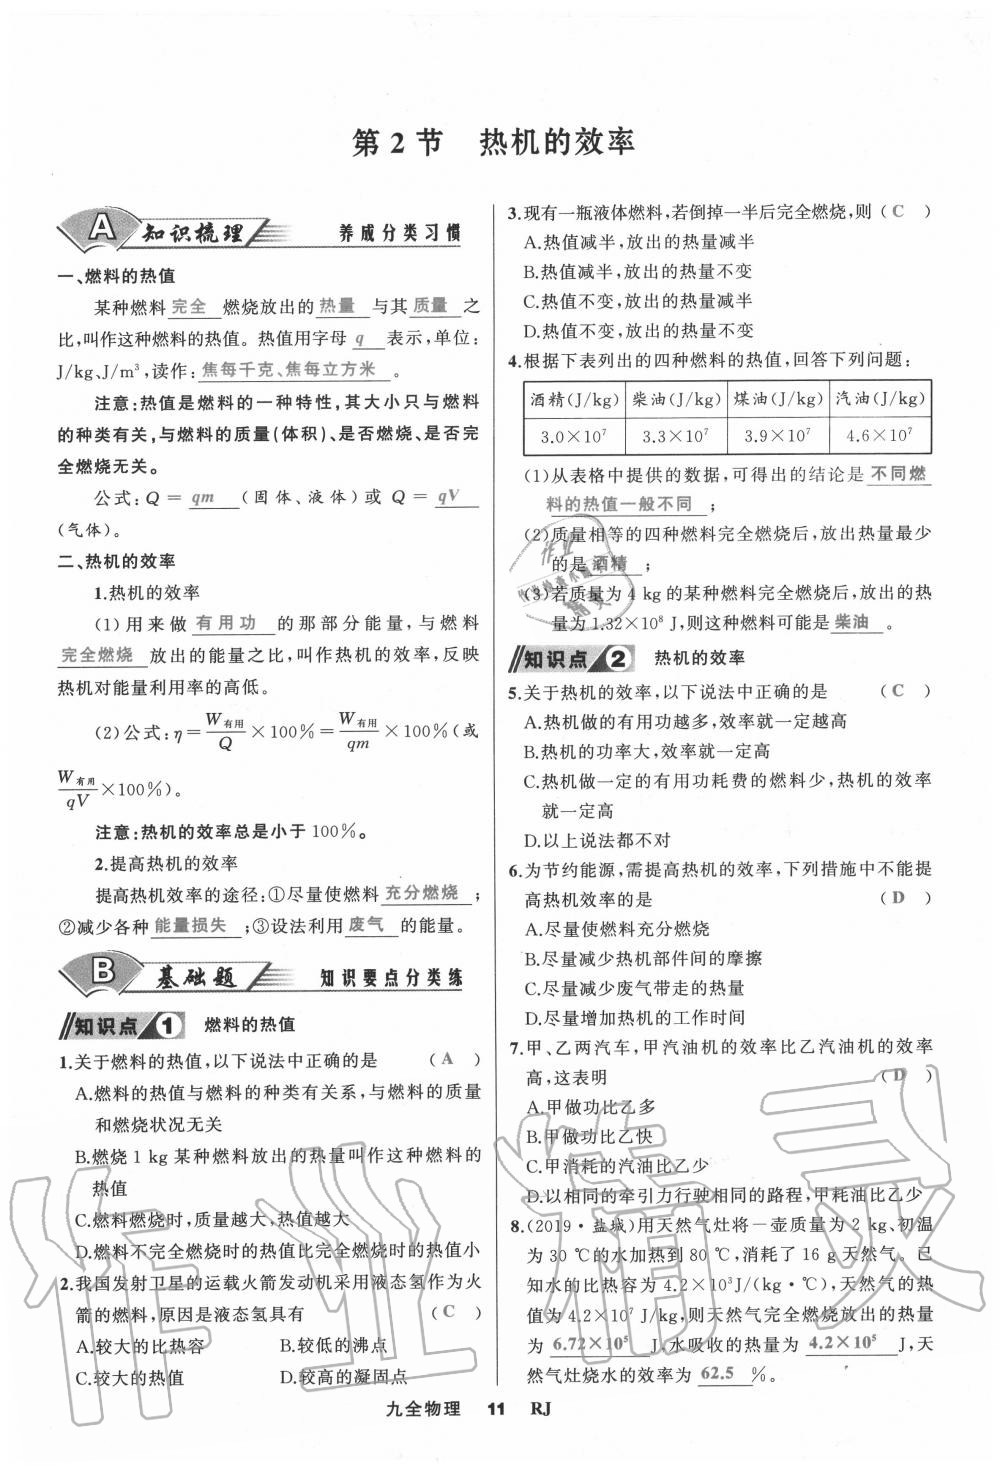 第2节　热机的效率
A 知识梳理 养成分类习惯
一、燃料的热值
某种燃料 完全 燃烧放出的 热量 与其 质量 之
比,叫作这种燃料的热值。热值用字母 q 表示,单位:
J/kg、J/m³,读作: 焦每千克、焦每立方米 。
注意:热值是燃料的一种特性,其大小只与燃料
的种类有关,与燃料的质量(体积)、是否燃烧、是否完
全燃烧无关。
公式:Q = qm (固体、液体)或 Q = qV
(气体)。
二、热机的效率
1.热机的效率
(1)用来做 有用功 的那部分能量,与燃料
完全燃烧 放出的能量之比,叫作热机的效率,反映
热机对能量利用率的高低。
(2)公式:η=W有用/Q×100%=W有用/qm×100%(或
W有用/qV×100%)。
注意:热机的效率总是小于100%。
2.提高热机的效率
提高热机效率的途径:①尽量使燃料 充分燃烧 ;
②减少各种 能量损失 ;③设法利用 废气 的能量。
B 基础题 知识要点分类练
知识点 1 燃料的热值
1.关于燃料的热值,以下说法中正确的是 ( A )
A.燃料的热值与燃料的种类有关系,与燃料的质量
和燃烧状况无关
B.燃烧1 kg某种燃料放出的热量叫作这种燃料的
热值
C.燃料燃烧时,质量越大,热值越大
D.燃料不完全燃烧时的热值比完全燃烧时的热值小
2.我国发射卫星的运载火箭发动机采用液态氢作为火
箭的燃料,原因是液态氢具有 ( C )
A.较大的比热容 B.较低的沸点
C.较大的热值 D.较高的凝固点
3.现有一瓶液体燃料,若倒掉一半后完全燃烧,则( C )
A.热值减半,放出的热量减半
B.热值减半,放出的热量不变
C.热值不变,放出的热量减半
D.热值不变,放出的热量不变
4.根据下表列出的四种燃料的热值,回答下列问题:
酒精(J/kg) 柴油(J/kg) 煤油(J/kg) 汽油(J/kg)
3.0×10⁷ 3.3×10⁷ 3.9×10⁷ 4.6×10⁷
(1)从表格中提供的数据,可得出的结论是 不同燃
料的热值一般不同 ;
(2)质量相等的四种燃料完全燃烧后,放出热量最少
的是 酒精 ;
(3)若质量为4 kg的某种燃料完全燃烧后,放出的热
量为1.32×10⁸ J,则这种燃料可能是 柴油 。
知识点 2 热机的效率
5.关于热机的效率,以下说法中正确的是 ( C )
A.热机做的有用功越多,效率就一定越高
B.热机的功率大,效率就一定高
C.热机做一定的有用功耗费的燃料少,热机的效率
就一定高
D.以上说法都不对
6.为节约能源,需提高热机的效率,下列措施中不能提
高热机效率的是 ( D )
A.尽量使燃料充分燃烧
B.尽量减少热机部件间的摩擦
C.尽量减少废气带走的热量
D.尽量增加热机的工作时间
7.甲、乙两汽车,甲汽油机的效率比乙汽油机的效率
高,这表明 ( D )
A.甲做功比乙多
B.甲做功比乙快
C.甲消耗的汽油比乙少
D.以相同的牵引力行驶相同的路程,甲耗油比乙少
8.(2019·盐城)用天然气灶将一壶质量为2 kg、初温
为30 ℃的水加热到80 ℃,消耗了16 g天然气。已
知水的比热容为4.2×10³J/(kg·℃),天然气的热
值为4.2×10⁷ J/kg,则天然气完全燃烧放出的热量
为 6.72×10⁵ J,水吸收的热量为 4.2×10⁵ J,天
然气灶烧水的效率为 62.5 %。
九全物理 11 RJ
作业精灵